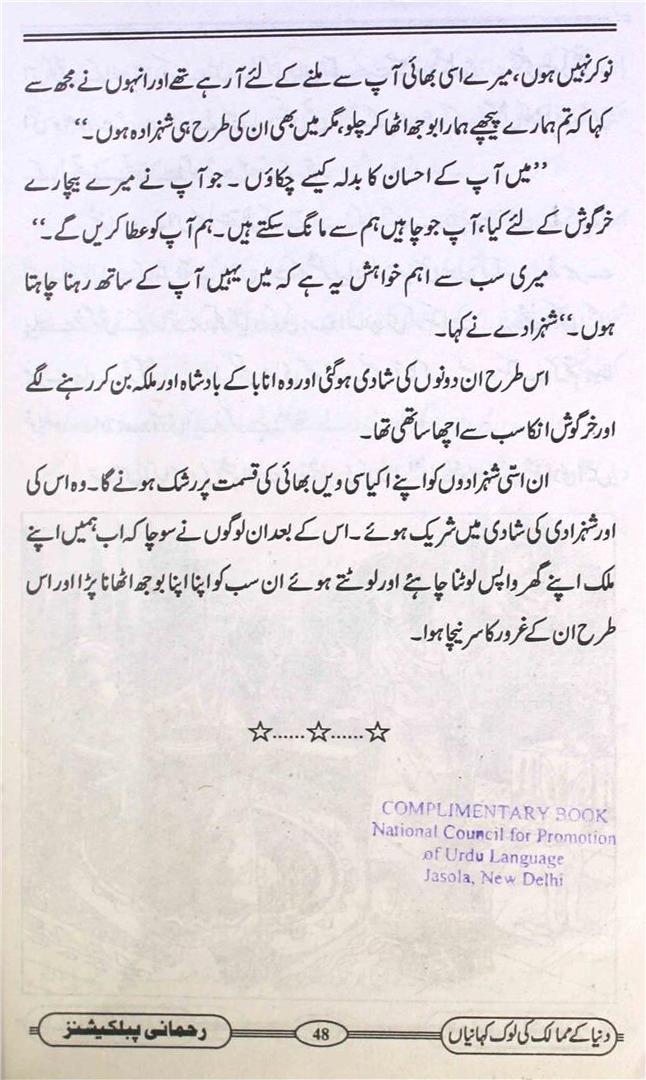 نوکر نہیں ہوں، میرے اسی بھائی آپ سے ملنے کے لئے آرہے تھے اور انہوں نے مجھ سے
کہا کہ تم ہمارے پیچھے ہمارا بوجھ اٹھا کر چلو، مگر میں بھی ان کی طرح ہی شہزادہ ہوں۔“
”میں آپ کے احسان کا بدلہ کیسے چکاؤں۔ جو آپ نے میرے بیچارے
خرگوش کے لئے کیا، آپ جو چاہیں ہم سے مانگ سکتے ہیں۔ ہم آپ کو عطا کریں گے۔“
میری سب سے اہم خواہش یہ ہے کہ میں یہیں آپ کے ساتھ رہنا چاہتا
ہوں۔“ شہزادے نے کہا۔
اس طرح ان دونوں کی شادی ہوگئی اور وہ انابا کے بادشاہ اور ملکہ بن کر رہنے لگے
اور خرگوش انکا سب سے اچھا ساتھی تھا۔
ان اسّی شہزادوں کو اپنے اکیاسی ویں بھائی کی قسمت پر رشک ہونے گا۔ وہ اس کی
اور شہزادی کی شادی میں شریک ہوئے۔ اس کے بعد ان لوگوں نے سوچا کہ اب ہمیں اپنے
ملک اپنے گھر واپس لوٹنا چاہئے اور لوٹتے ہوئے ان سب کو اپنا اپنا بوجھ اٹھانا پڑا اور اس
طرح ان کے غرور کا سر نیچا ہوا۔
☆......☆......☆
COMPLIMENTARY BOOK
National Council for Promotion
of Urdu Language
Jasola, New Delhi
دنیا کے ممالک کی لوک کہانیاں 48 رحمانی پبلکیشنز